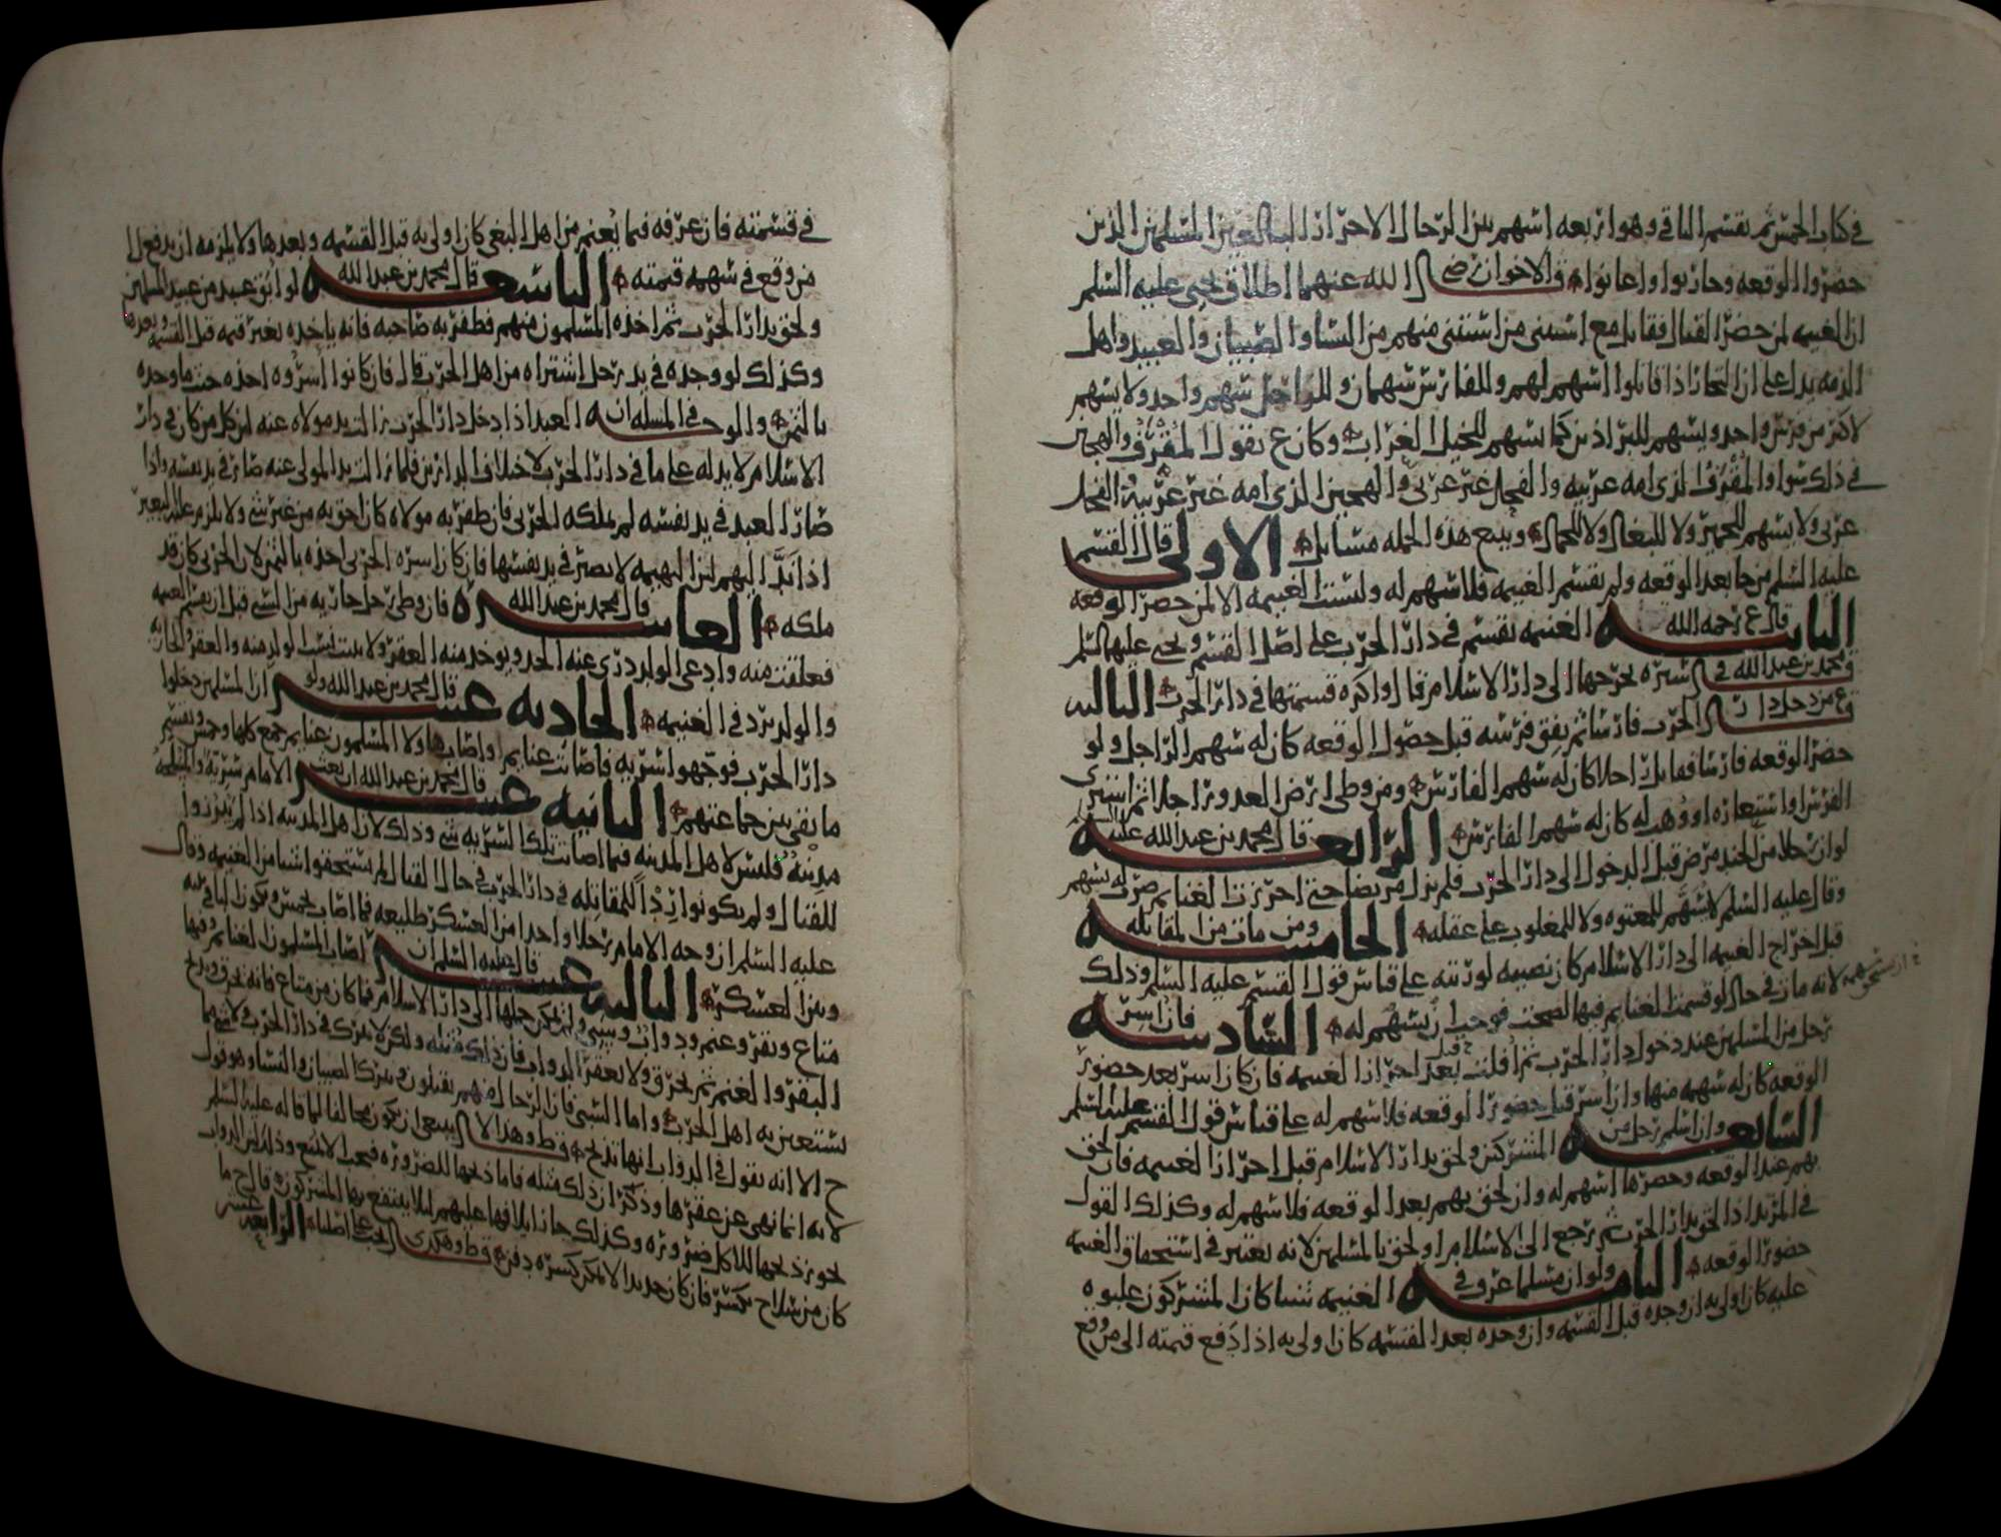 في كتاب الخمس ثم يقسم الباقي وهو اربعه اسهم بين الرجال الاحرار البالغين المسلمين الذين
حضروا الوقعه وحاربوا واعانوا والاخوان رضي الله عنهما اطلاق يحيى عليه السلم
ان الغنيمه لمن حضر القتال فقاتل مع استثنى من استثنى منهم من النسا والصبيان والعبيد واهل
الذمه يدل على ان التجار اذا قاتلوا اسهم لهم وللفارس سهمان وللراجل سهم واحد ولا يسهم
لاكثر من فرس واحد ويسهم للبراذين كما يسهم للخيل العراب وكان ع يقول المقرف والهجين
في ذلك سوا والمقرف الذي امه عربيه والفحل غير عربي والهجين الذي امه غير عربية والفحل
عربي ولا يسهم للحمير ولا للبغال ولا للجمال ويتبع هذه الجمله مسائل الاولى قال القسم
عليه السلم من جا بعد الوقعه ولم يقسم الغنيمه فلا سهم له وليست الغنيمه الا لمن حضر الوقعه
الثانيه قال ع رحمه الله الغنيمه تقسم في دار الحرب على اصل القسم ويحيى عليهما السلم
ومحمد بن عبدالله في سيره يخرجها الى دار الاسلام قال واكره قسمتها في دار الحرب الثالثه
ع من دخل دار الحرب فارسا ثم نفق فرسه قبل حصول الوقعه كان له سهم الراجل ولو
حضر الوقعه فارسا فقاتل راجلا كان له سهم الفارس ومن وطي ارض العدو راجلا ثم اشترى
الفرس او استعاره او وهب له كان له سهم الفارس الرابعه قال محمد بن عبدالله عليه السلم
لو ان رجلا من الجند مرض قبل الدخول الى دار الحرب فلم يزل مريضا حتى احرزت الغنايم ضرب له بسهم
وقال عليه السلم لا يسهم للمعتوه ولا للمغلوب على عقله الخامسه ومن مات من المقاتله
قبل اخراج الغنيمه الى دار الاسلام كان نصيبه لورثته على قياس قول القسم عليه السلم وذلك
لانه مات في حال لو قسمت الغنايم فيها لصحت فوجب ان يسهم له السادسه فان اسر
رجل من المسلمين عند دخول دار الحرب ثم افلت بعد احراز الغنيمه فان كان اسر بعد حضور
الوقعه كان له سهمه منها وان اسر قبل حضور الوقعه فلا سهم له على قياس قول القسم عليه السلم
السابعه وان اسلم رجل من المشركين ولحق بدار الاسلام قبل احراز الغنيمه فان لحق
بهم عند الوقعه وحضرها اسهم له وان لحق بهم بعد الوقعه فلا سهم له وكذلك القول
في المرتد اذا لحق بدار الحرب ثم رجع الى الاسلام او لحق بالمسلمين لانه يعتبر في استحقاق الغنيمه
حضور الوقعه الثامنه ولو ان مسلما عرف في الغنيمه شيا كان المشركون غلبوه
عليه كان اولى به ان وجده قبل القسمه وان وجده بعد القسمه كان اولى به اذا دفع قيمته الى من وقع
في قسمته فان عرفه فيما يغنم من اهل البغي كان اولى به قبل القسمه وبعدها ولا يلزمه ان يدفع الى
من وقع في سهمه قيمته التاسعه قال محمد بن عبدالله لو ابق عبد من عبيد المسلمين
ولحق بدار الحرب ثم اخذه المسلمون منهم فظفر به صاحبه فانه ياخذه بغير قيمه قبل القسمه وبعدها
وكذلك لو وجده في يد رجل اشتراه من اهل الحرب قال فان كانوا اسروه اخذه حيث ما وجده
بالثمن والوجه في المسله ان العبد اذا دخل دار الحرب زالت يد مولاه عنه لان كل من كان في دار
الاسلام لا يد له على ما في دار الحرب لاختلاف الدارين فلما زالت يد المولى عنه صار في يد نفسه واذا
صار العبد في يد نفسه لم يملكه الحربي فان ظفر به مولاه كان احق به من غير شي ولا يلزم عليه البعير
اذا ند اليهم لان البهيمه لا تصير في يد نفسها فان كان اسره الحربي اخذه بالثمن لان الحربي كان قد
ملكه العاشره قال محمد بن عبدالله فان وطي رجل جاريه من السبي قبل ان يقسم الغنيمه
فعلقت منه وادعى الولد دري عنه الحد ويوخذ منه العقر ولا يثبت نسب الولد منه والعقر والجاريه
والولد يرد في الغنيمه الحاديه عشر قال محمد بن عبدالله ولو ان المسلمين دخلوا
دار الحرب فوجهوا سريه فاصابت غنايم واصاب هاولا المسلمون غنايم جمع كلها وخمس ويقسم
ما بقي بين جماعتهم الثانيه عشر قال محمد بن عبدالله ان بعث الامام سريه والمسلمه
مدينه فليس لاهل المدينه فيما اصابت تلك السريه شي وذلك لان اهل المدينه اذا لم يبرزوا
للقتال ولم يكونوا ردا للمقاتله في دار الحرب في حال القتال لم يستحقوا شيا من الغنيمه وقال
عليه السلم ان وجه الامام رجلا واحدا من العسكر طليعه فما اصاب يخمس ويكون الباقي بينه
وبين العسكر الثالثه عشر قال عليه السلم ان اصاب المسلمون الغنايم وفيها
متاع وبقر وغنم ودواب وسبي ولم يمكن حملها الى دار الاسلام فما كان من متاع فانه يحرق ويذبح
البقر والغنم ثم يحرق ولا يعقر الدواب فان ذلك مثله ولكن لا يترك في دار الحرب لا
يستعين به اهل الحرب واما السبي فان الرجال منهم يقتلون ويترك الصبيان والنسا وهو قول
ح الا انه يقول في الدواب انها تذبح قط وهذا لا ينبغي ان يكون مخالفا لما قاله عليه السلم
لانه انما نهى عن عقرها وذكر ان ذلك مثله فاما ذبحها للضروره فيجب الا يمنع وذلك لان الدواب
يجوز ذبحها للاكل ضروره وكذلك جاز اتلافها عليهم لئلا ينتفع بها المشركون قال ح ما
كان من سلاح يكسر فان كان حديدا لا يمكن كسره دفن قط وهكذى يجب على اصلنا الرابعه عشر